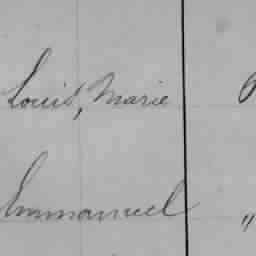 Louis, Marie
Emmanuel "